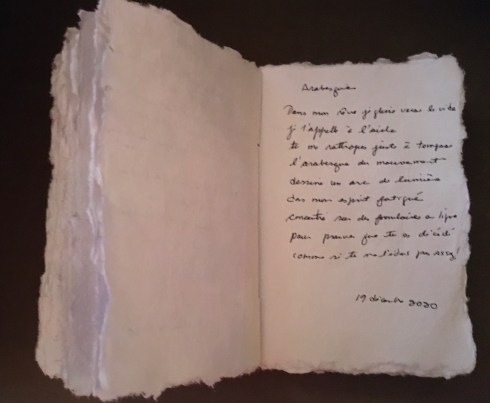 Arabesque
Dans mon rêve je glisse vers le vide
je t'appelle à l'aide
tu me rattrapes juste à temps
l'arabesque du mouvement
dessine un arc de lumière
dans mon esprit fatigué
des formulaires
pour prouver que tu es décédé
comme si tu ne l'étais pas assez!
19 décembre 2020